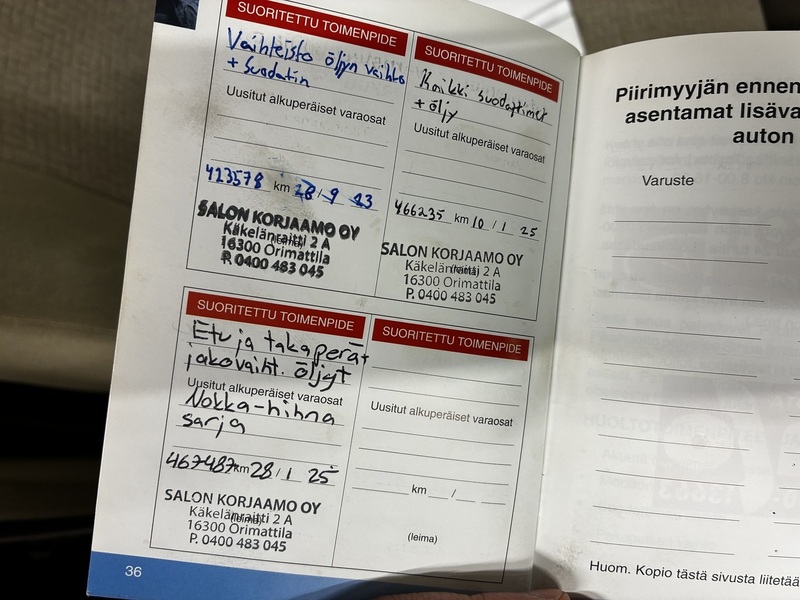 SUORITETTU TOIMENPIDE
Vaihteisto öljyn vaihto
+ Suodatin
Uusitut alkuperäiset varaosat
423578 km 28/9 23
SALON KORJAAMO OY
Käkelänraitti 2 A
(leima)
16300 Orimattila
P. 0400 483 045
SUORITETTU TOIMENPIDE
Kaikki suodattimet
+ öljy
Uusitut alkuperäiset varaosat
466235 km 10 / 1 25
SALON KORJAAMO OY
Käkelänraitti 2 A
(leima)
16300 Orimattila
P. 0400 483 045
SUORITETTU TOIMENPIDE
Etu ja takaperät
jakovaiht. öljyt
Uusitut alkuperäiset varaosat
Nokka-hihna
sarja
467487 km 28 / 1 25
SALON KORJAAMO OY
Käkelänraitti 2 A
(leima)
16300 Orimattila
P. 0400 483 045
SUORITETTU TOIMENPIDE
Uusitut alkuperäiset varaosat
km / 
(leima)
36
Piirimyyjän ennen
asentamat lisäva
auton
Varuste
Huom. Kopio tästä sivusta liitetää